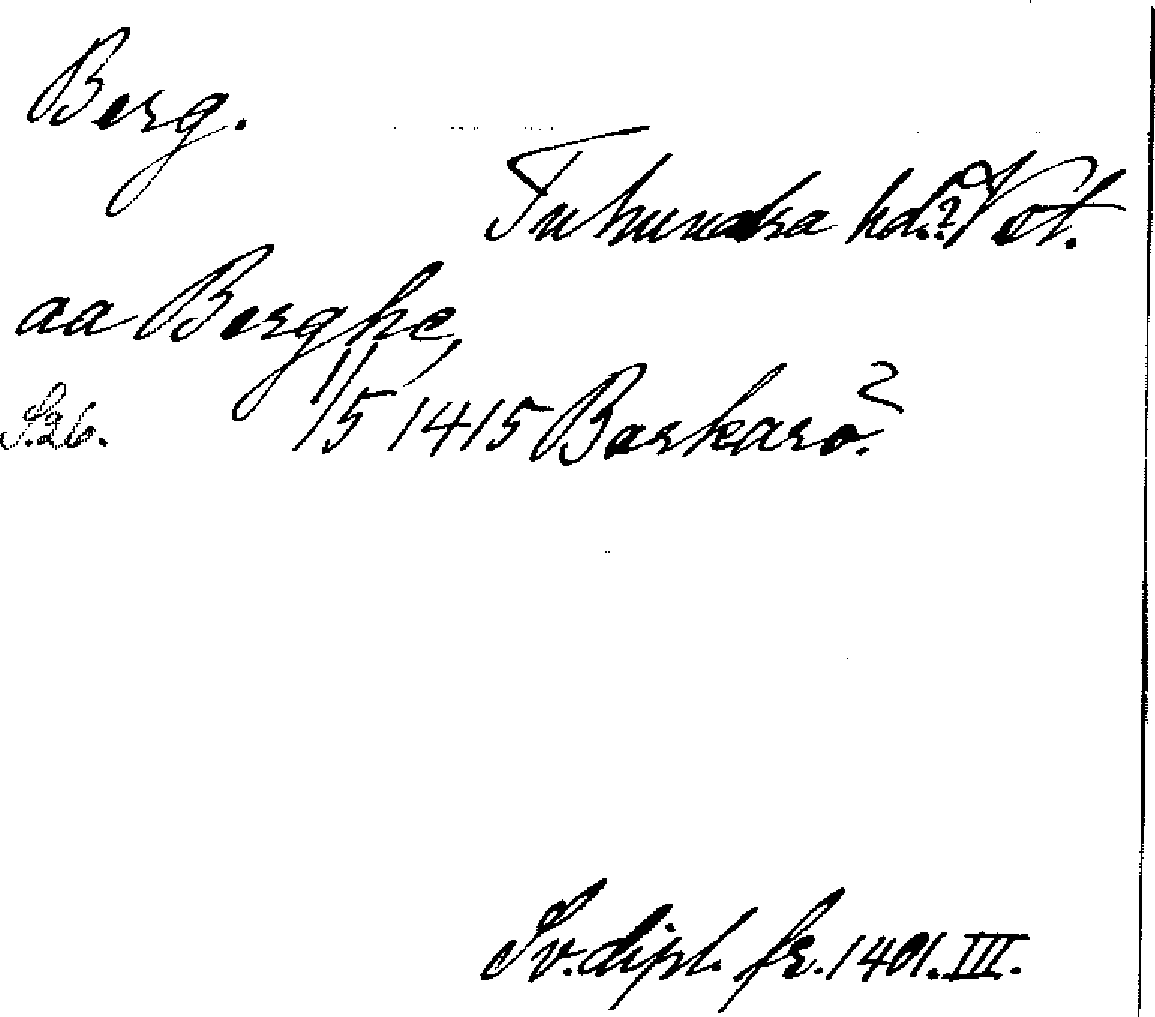 Berg.
Tuhundra hd.? Vstl.
aa Berghe,
S.26. 11/5 1415 Barkarö?
Sv. dipl. fr. 1401. III.